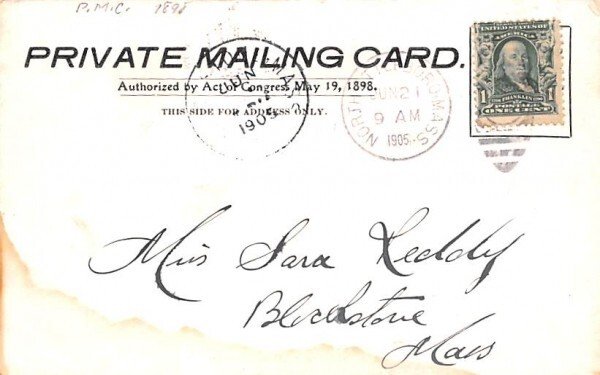 P.M.C. 1898
PRIVATE MAILING CARD.
Authorized by Act of Congress May 19, 1898.
THIS SIDE FOR ADDRESS ONLY.
JUN
MASS
1905
MASS
JUN 21
9 AM
1905
UNITED STATES OF AMERICA
FRANKLIN
1 POSTAGE 1
ONE CENT
Miss Sara Reddy
Blackstone
Mass